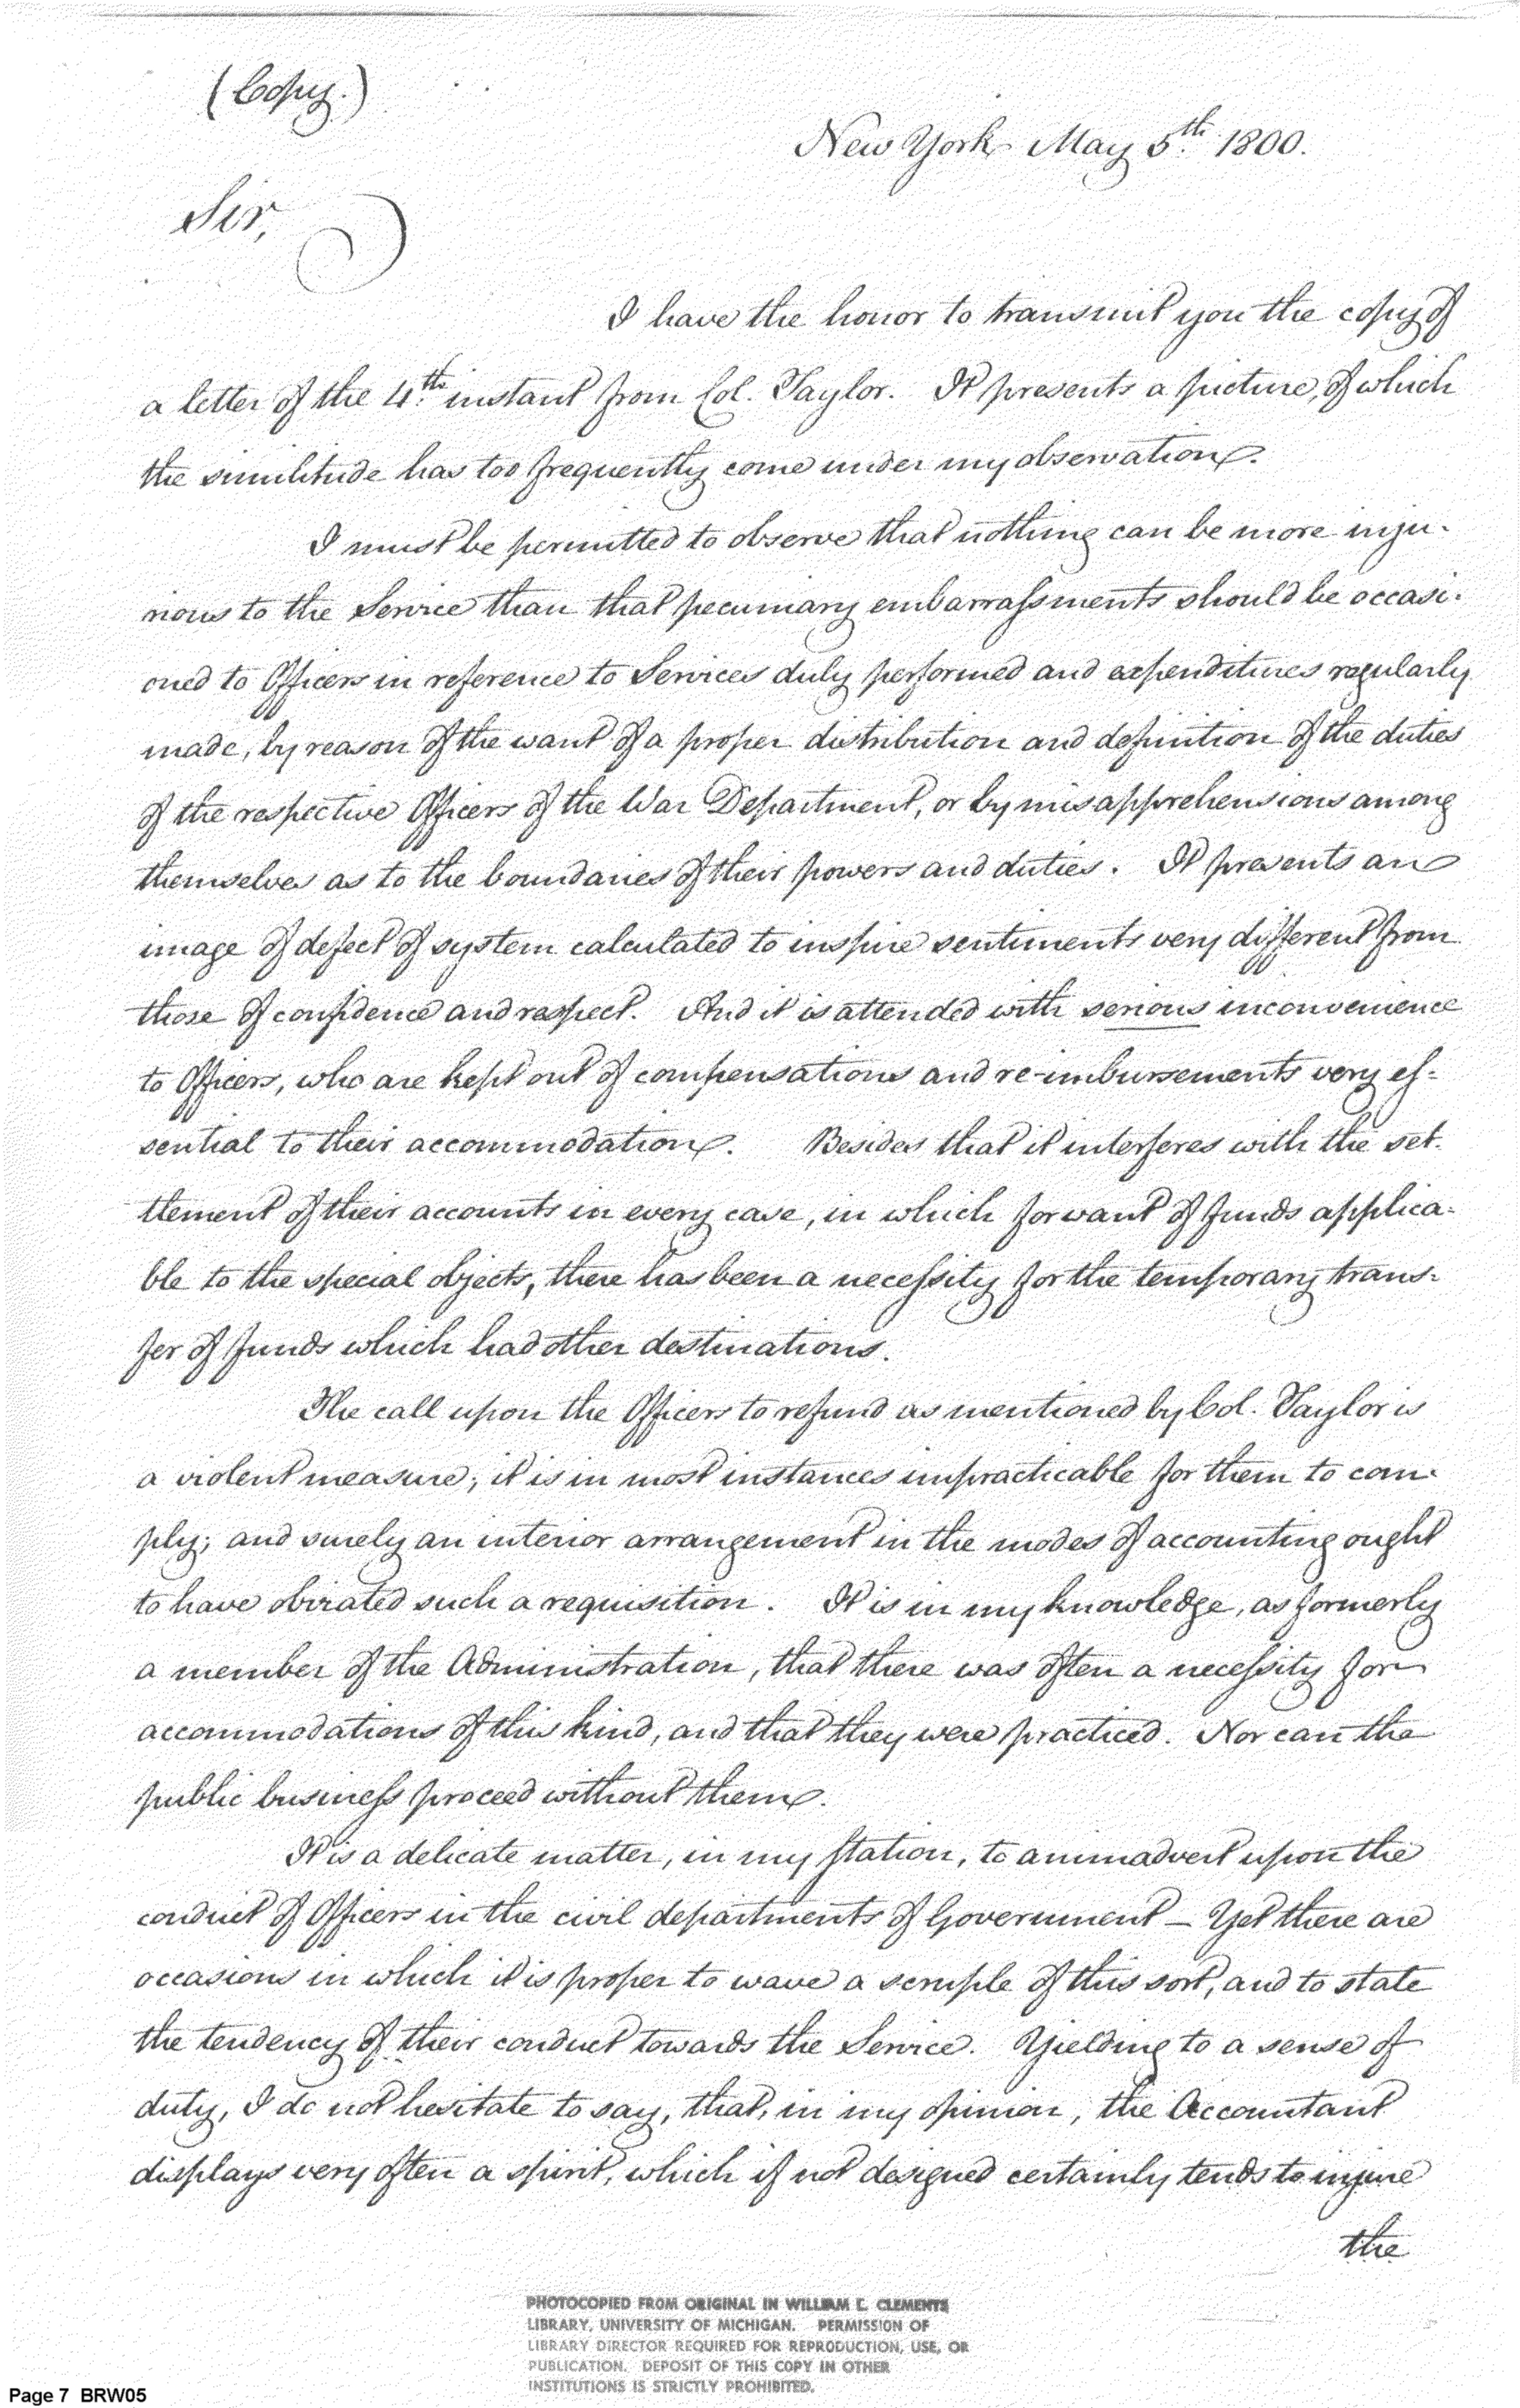 (Copy.)
New York May 5th. 1800.
Sir,
I have the honor to transmit you the copy of
a letter of the 4th. instant from Col. Taylor. It presents a picture, of which
the similitude has too frequently come under my observation.
I must be permitted to observe that nothing can be more inju-
rious to the Service than that pecuniary embarrassments should be occasi-
oned to Officers in reference to Services duly performed and expenditures regularly
made, by reason of the want of a proper distribution and definition of the duties
of the respective Officers of the War Department, or by misapprehensions among
themselves as to the boundaries of their powers and duties. It presents an
image of defect of system calculated to inspire sentiments very different from
those of confidence and respect. And it is attended with serious inconvenience
to Officers, who are kept out of compensations and re-imbursements very es-
sential to their accommodation. Besides that it interferes with the set-
tlement of their accounts in every case, in which for want of funds applica-
ble to the special objects, there has been a necessity for the temporary trans-
fer of funds which had other destinations.
The call upon the Officers to refund as mentioned by Col. Taylor is
a violent measure; it is in most instances impracticable for them to com-
ply; and surely an interior arrangement in the modes of accounting ought
to have obviated such a requisition. It is in my knowledge, as formerly
a member of the Administration, that there was often a necessity for
accommodations of this kind, and that they were practiced. Nor can the
public business proceed without them.
It is a delicate matter, in my station, to animadvert upon the
conduct of Officers in the civil departments of Government — Yet there are
occasions in which it is proper to wave a scruple of this sort, and to state
the tendency of their conduct towards the Service. Yielding to a sense of
duty, I do not hesitate to say, that, in my opinion, the Accountant
displays very often a spirit, which if not designed certainly tends to injure
the
PHOTOCOPIED FROM ORIGINAL IN WILLIAM L. CLEMENTS
LIBRARY, UNIVERSITY OF MICHIGAN. PERMISSION OF
LIBRARY DIRECTOR REQUIRED FOR REPRODUCTION, USE, OR
PUBLICATION. DEPOSIT OF THIS COPY IN OTHER
INSTITUTIONS IS STRICTLY PROHIBITED.
Page 7 BRW05